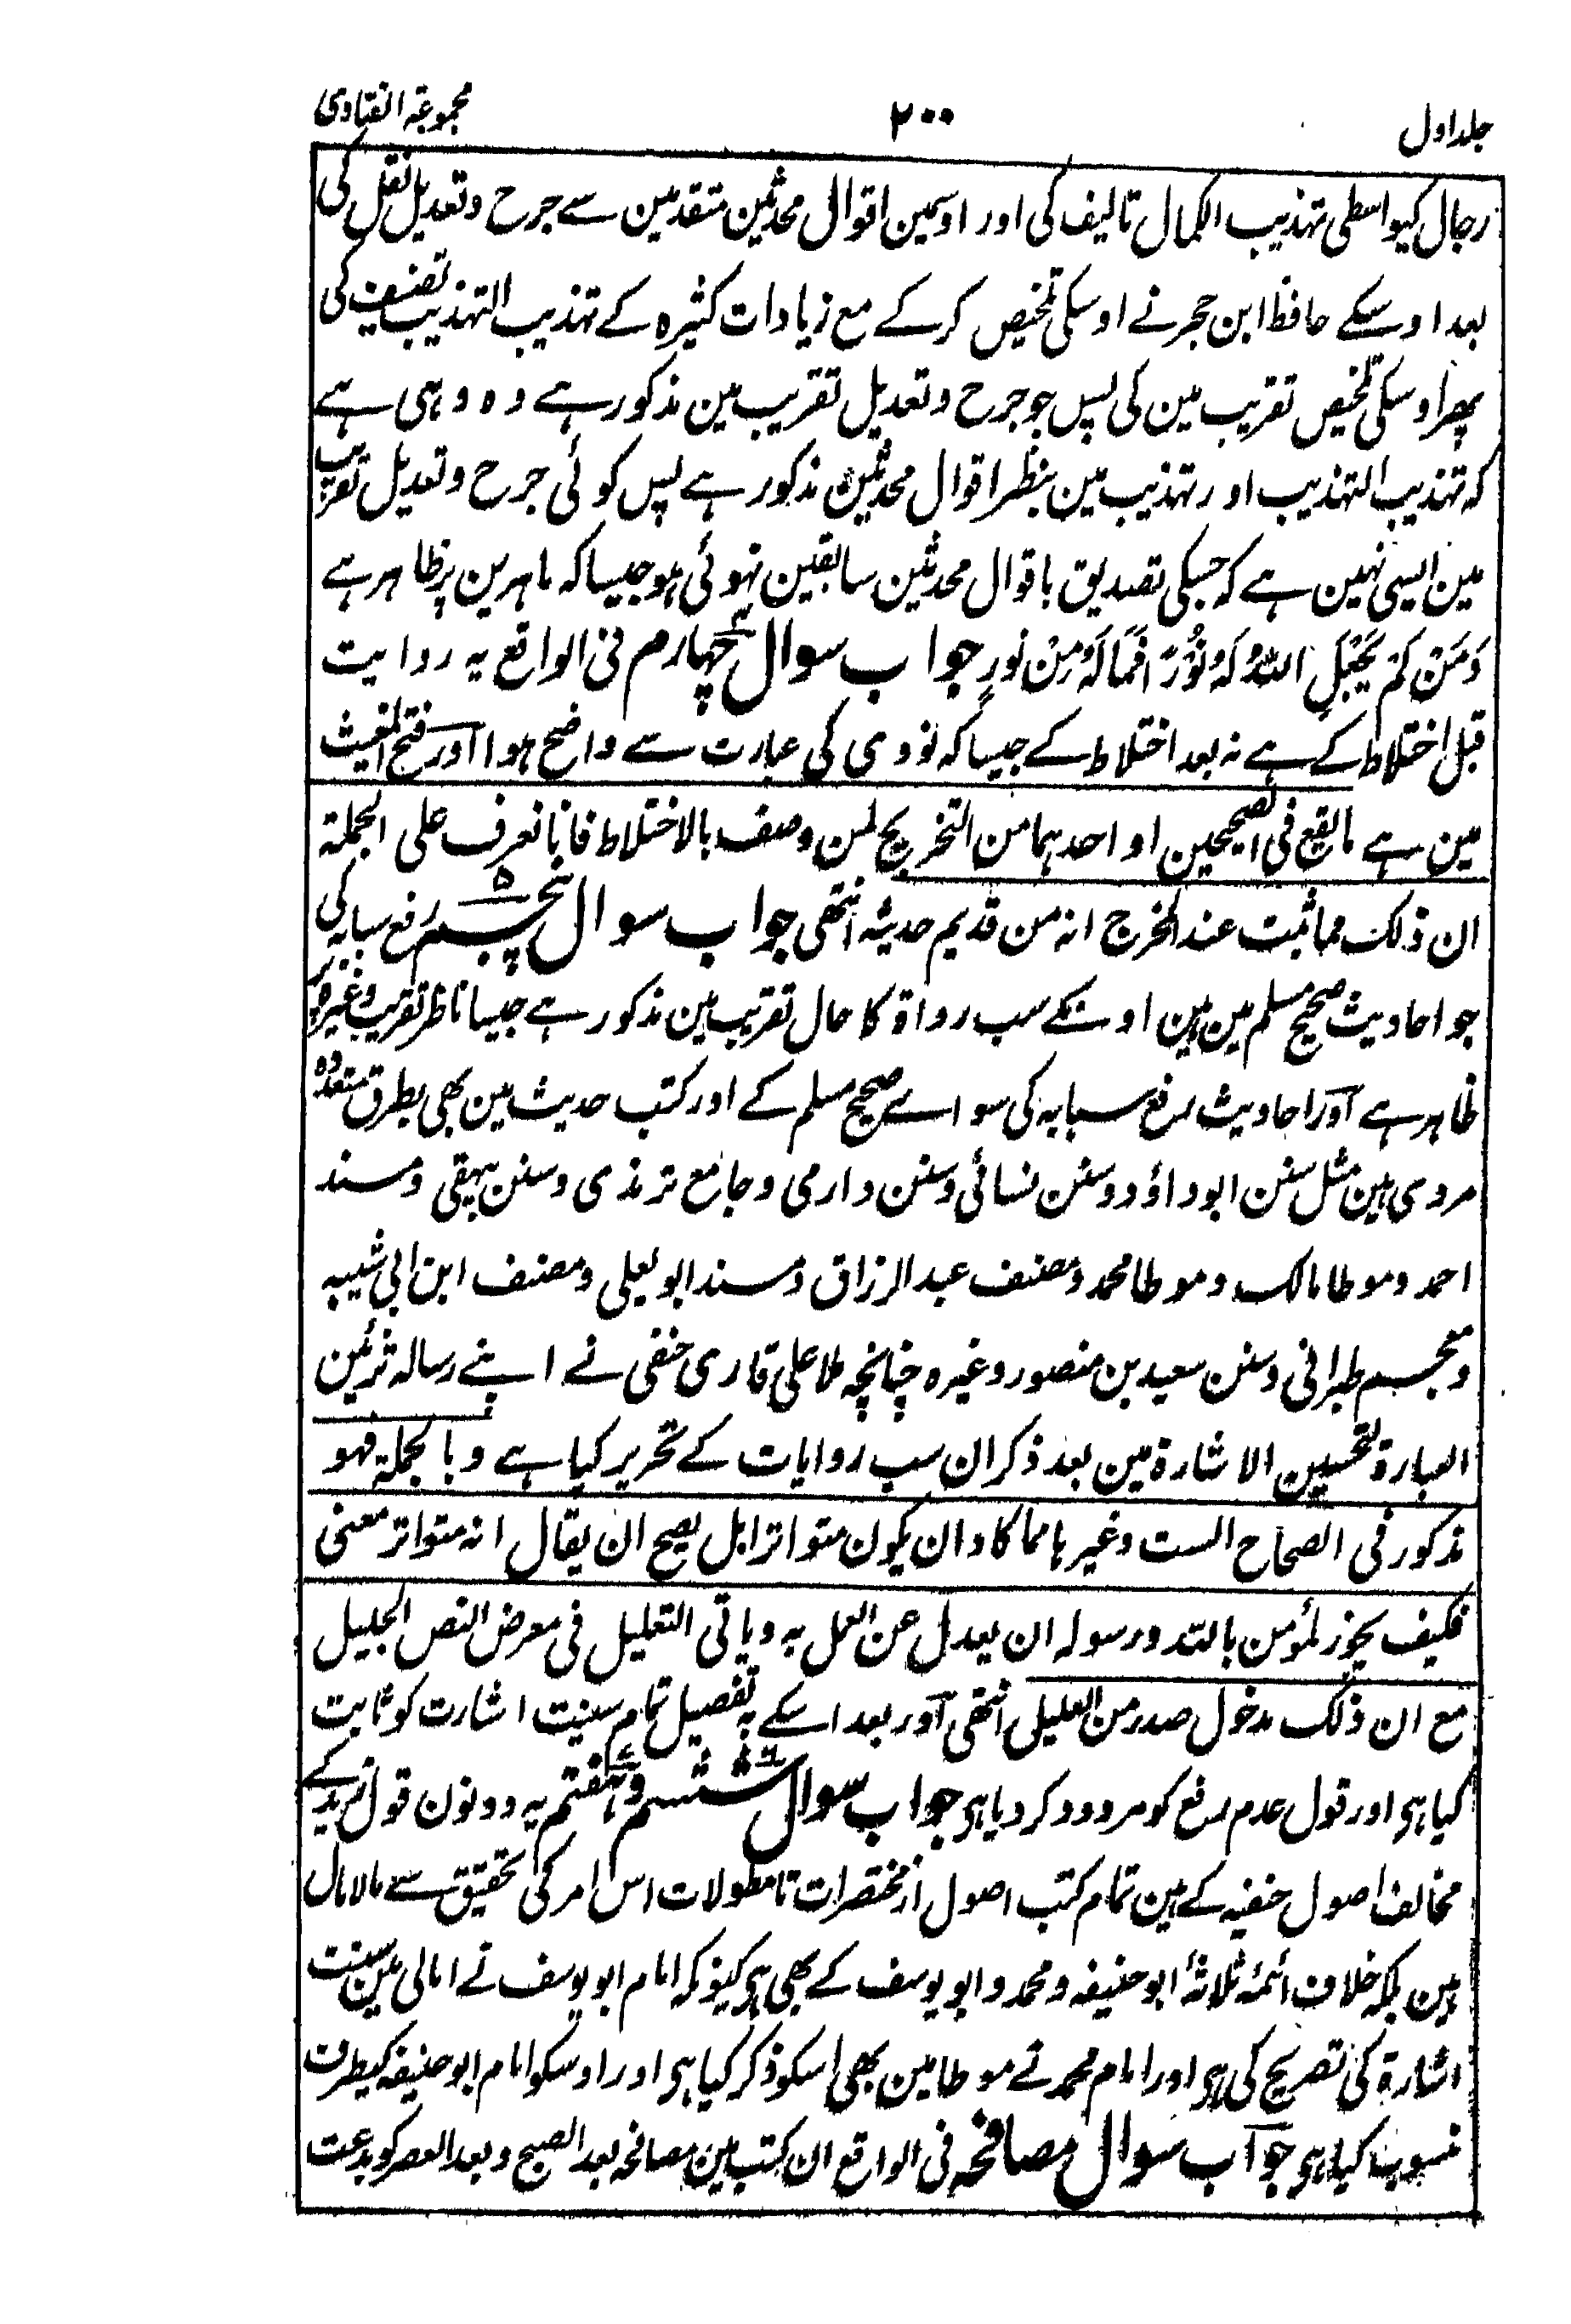 جلد اول
۲۰۰
مجموعۃ الفتاوی
رجال کیواسطی تہذیب الکمال تالیف کی اور اوسمین اقوال محدثین متقدمین سے جرح و تعدیل نقل کی
بعد اوسکے حافظ ابن حجر نے اوسکی تلخیص کرکے مع زیادات کثیرہ کے تہذیب التہذیب تصنیف کی
پھر اوسکی تلخیص تقریب مین کی پس جو جرح و تعدیل تقریب مین مذکور ہے وہ وہی ہے
کہ تہذیب التہذیب اور تہذیب مین بنظر اقوال محدثین مذکور ہے پس کوئی جرح و تعدیل تقریب
مین ایسی نہین ہے کہ جسکی تصدیق باقوال محدثین سابقین نہوئی ہو جیسا کہ ماہرین پر ظاہر ہے
وَمَنْ لَمْ یَجْعَلِ اللّٰہُ لَہٗ نُوْرًا فَمَا لَہٗ مِنْ نُورٍ جواب سوال چہارم ۴ فی الواقع یہ روایت
قبل اختلاط کے ہے نہ بعد اختلاط کے جیسا کہ نووی کی عبارت سے واضح ہوا اور فتح المغیث
مین ہے ما یقع فی الصحیحین او احدہما من التخریج لمن وصف بالاختلاط فانا نعرف علی الجملۃ
ان ذلک مما ثبت عند المخرج انہ من قدیم حدیثہ انتہی جواب سوال پنجم ۵ رفع سبابہ کی
جو احادیث صحیح مسلم مین ہین اونکے سب رواۃ کا حال تقریب مین مذکور ہے جیسا ناظر تقریب وغیرہ پر
ظاہر ہے اور احادیث رفع سبابہ کی سواے صحیح مسلم کے اور کتب حدیث مین بھی بطرق متعددہ
مروی ہین مثل سنن ابو داؤد و سنن نسائی و سنن دارمی و جامع ترمذی و سنن بیہقی و مسند
احمد و موطا مالک و موطا محمد و مصنف عبد الرزاق و مسند ابو یعلی و مصنف ابن ابی شیبہ
و معجم طبرانی و سنن سعید بن منصور وغیرہ چنانچہ ملا علی قاری حنفی نے اپنے رسالہ تزئین
العبارۃ لتحسین الاشارۃ مین بعد ذکر ان سب روایات کے تحریر کیا ہے و بالجملۃ فہو
مذکور فی الصحاح الست وغیرہا مما کاد ان یکون متواترا بل یصح ان یقال انہ متواتر معنی
فکیف یجوز لمؤمن باللہ ورسولہ ان یعدل عن العمل بہ و یاتی التعلیل فی معرض النص الجلیل
مع ان ذلک مدخول صدر من العلیل انتہی اور بعد اسکے بہ تفصیل تمام سنیت اشارت کو ثابت
کیا ہی اور قول عدم رفع کو مردود کر دیا ہی جواب سوال ششم ۶ و ہفتم ۷ یہ دونون قول زید کے
مخالف اصول حنفیہ کے ہین تمام کتب اصول از مختصرات تا مطولات اس امر کی تحقیق سے مالامال
ہین بلکہ خلاف ائمۂ ثلاثۂ ابو حنیفہ و محمد و ابو یوسف کے بھی ہی کیونکہ امام ابو یوسف نے امالی مین سنیت
اشارۃ کی تصریح کی ہی اور امام محمد نے موطا مین بھی اسکو ذکر کیا ہی اور اوسکو امام ابو حنیفہ کیطرف
منسوب کیا ہی جواب سوال مصافحہ فی الواقع ان کتب مین مصافحہ بعد الصبح و بعد العصر کو بدعت